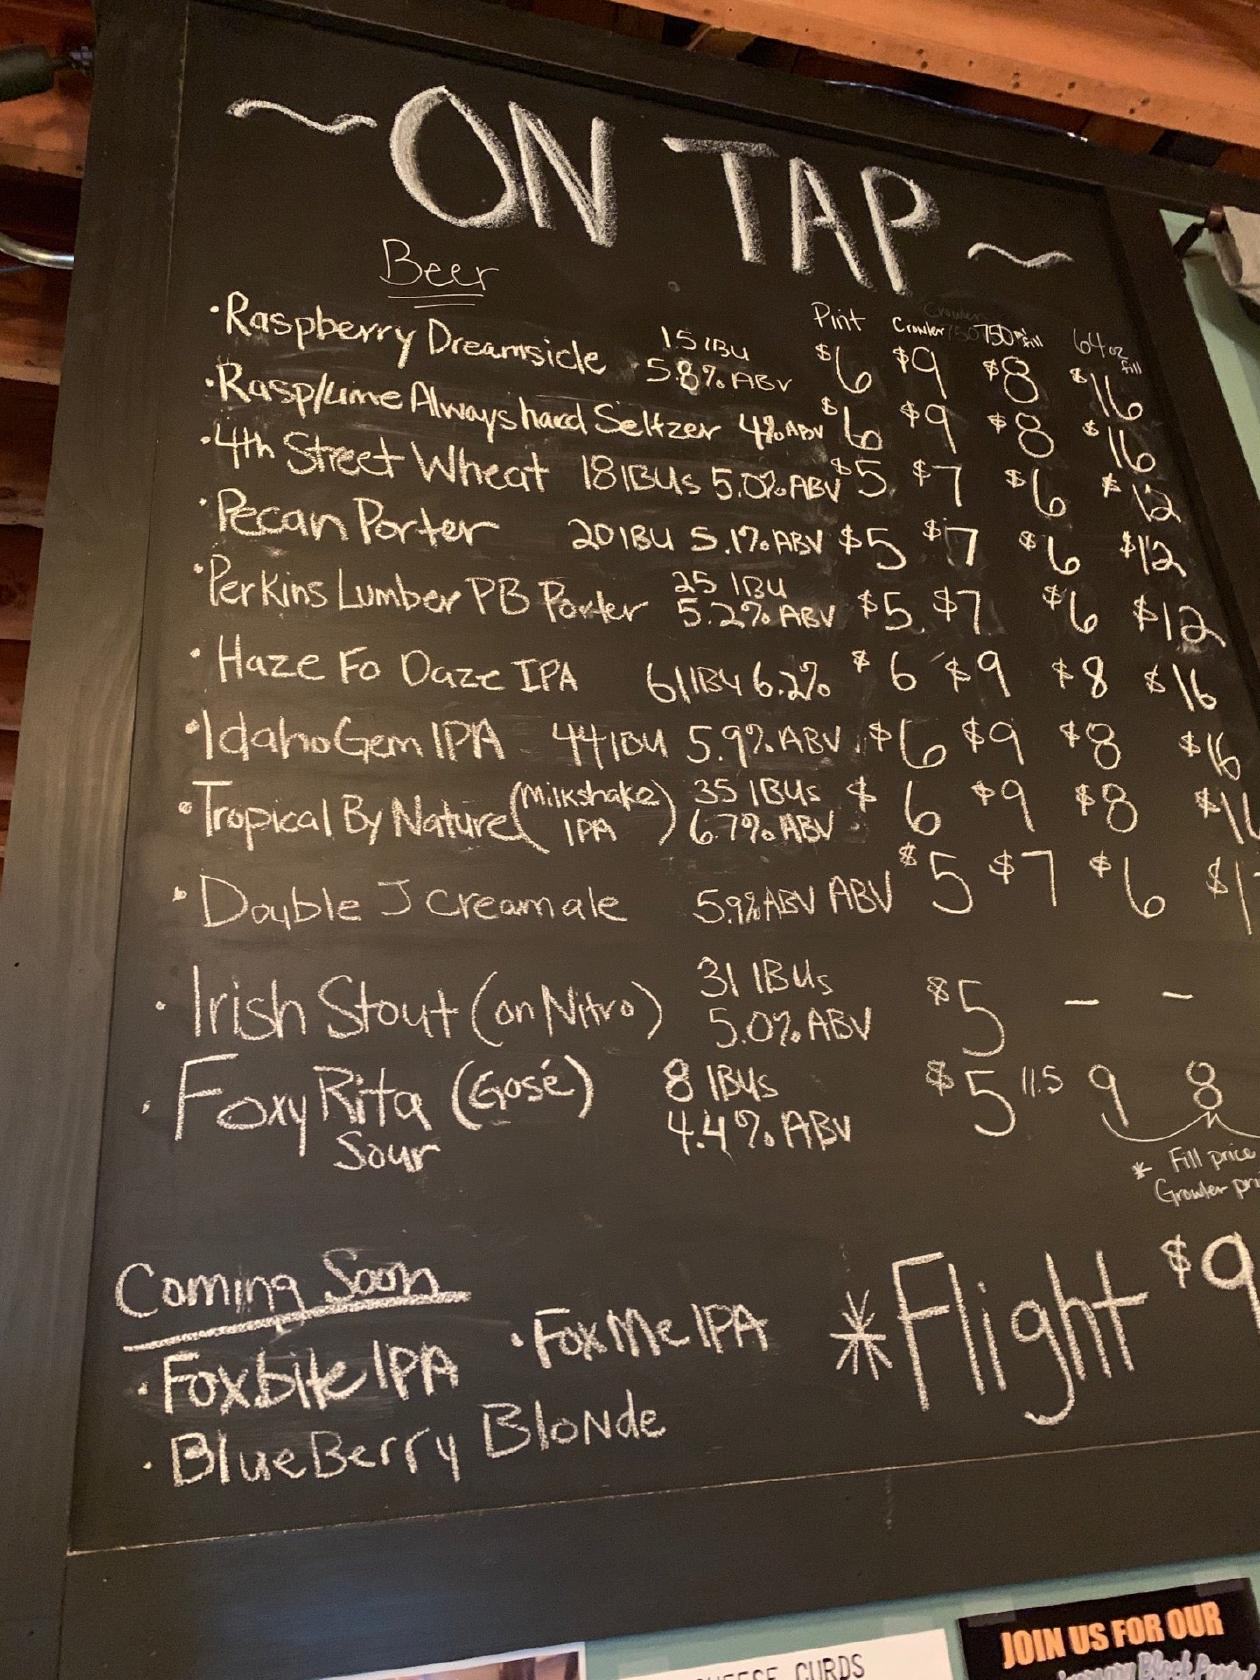 ~ ON TAP ~
Beer
Pint Crowler 750ml fill 64oz fill
·Raspberry Dreamsicle 15 IBU 5.8% ABV $6 $9 $8 $16
·Rasp/Lime Always hard Seltzer 4% ABV $6 $9 $8 $16
·4th Street Wheat 18 IBUs 5.0% ABV $5 $7 $6 $12
·Pecan Porter 20 IBU 5.1% ABV $5 $7 $6 $12
·Perkins Lumber PB Porter 25 IBU 5.2% ABV $5 $7 $6 $12
·Haze Fo Daze IPA 61 IBU 6.2% $6 $9 $8 $16
·Idaho Gem IPA 44 IBU 5.9% ABV $6 $9 $8 $16
·Tropical By Nature (Milkshake IPA) 35 IBUs 6.7% ABV $6 $9 $8
·Double J Creamale 5.9% ABV ABV $5 $7 $6
·Irish Stout (on Nitro) 31 IBUs 5.0% ABV $5 – –
·Foxy Rita (Gosé) 8 IBUs 4.4% ABV $5 11.5 9 8
Sour
* Fill price
Growler
Coming Soon
·Foxbite IPA ·Fox Me IPA
*Flight $9
·BlueBerry Blonde
CHEESE CURDS
JOIN US FOR OUR